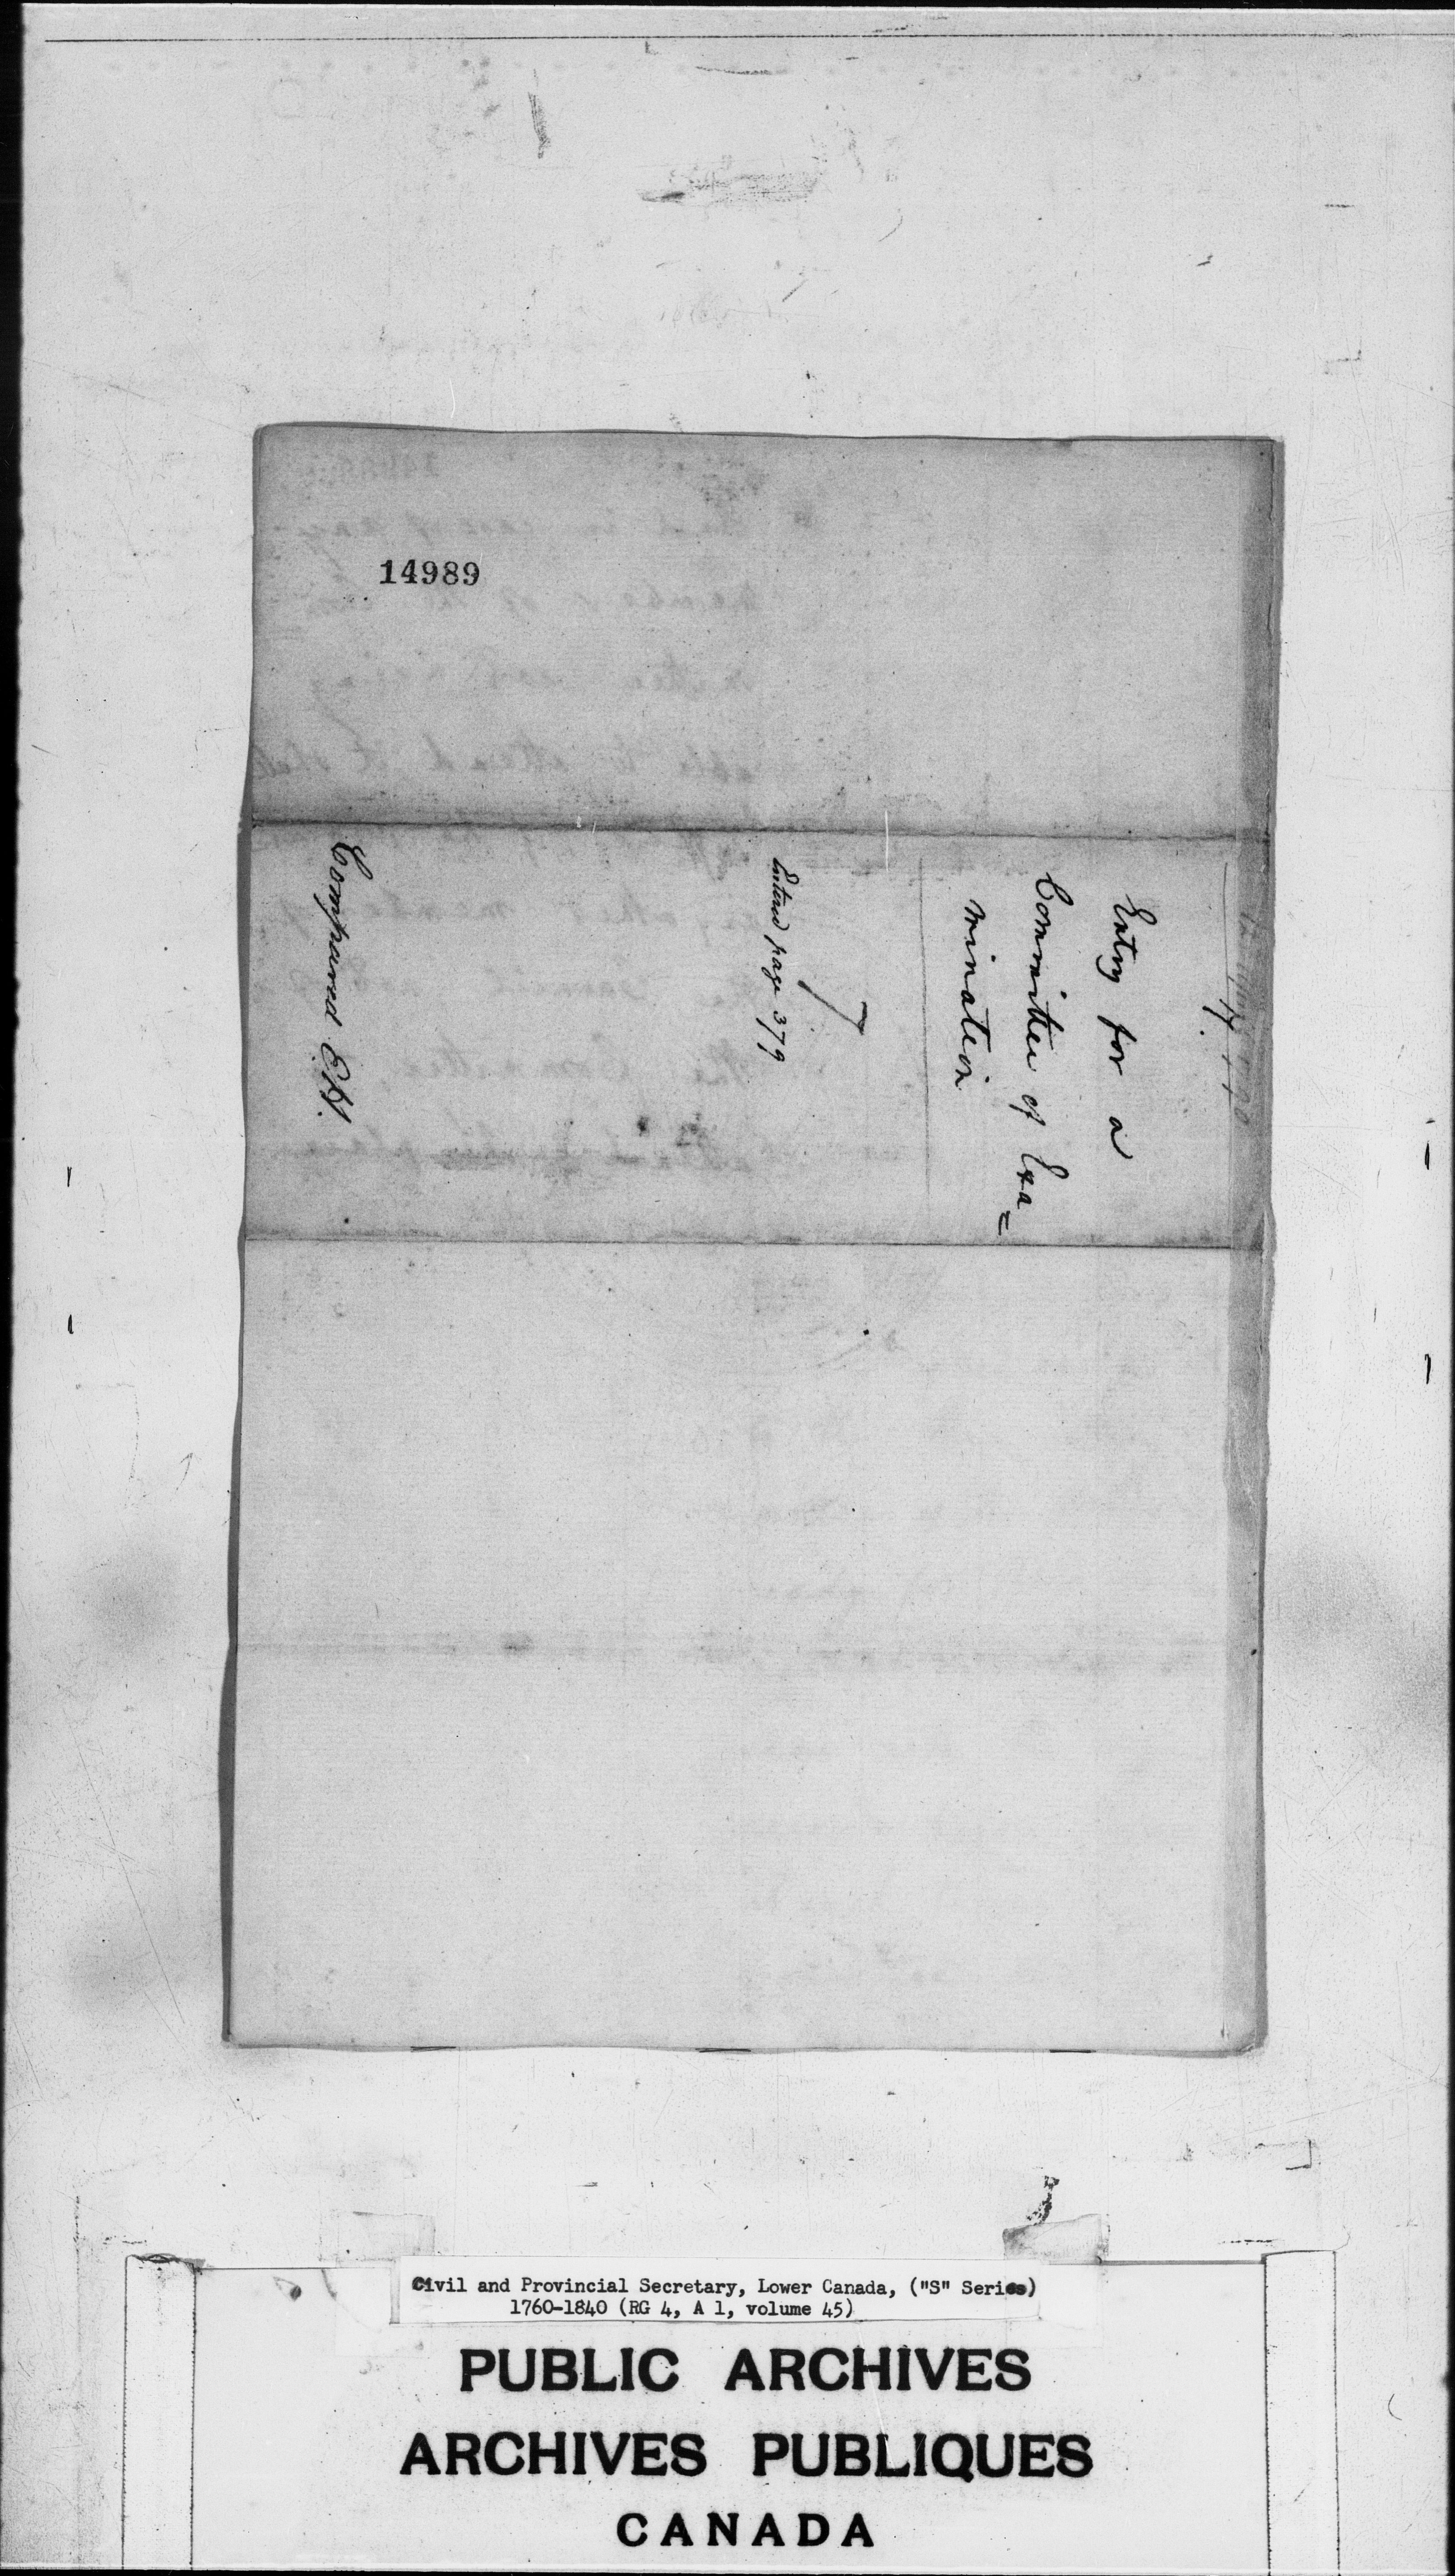 14989
Entry for a
Committee of Exa=
mination
Entered page 379
Compared
Civil and Provincial Secretary, Lower Canada, ("S" Series)
1760-1840 (RG 4, A 1, volume 45)
PUBLIC ARCHIVES
ARCHIVES PUBLIQUES
CANADA